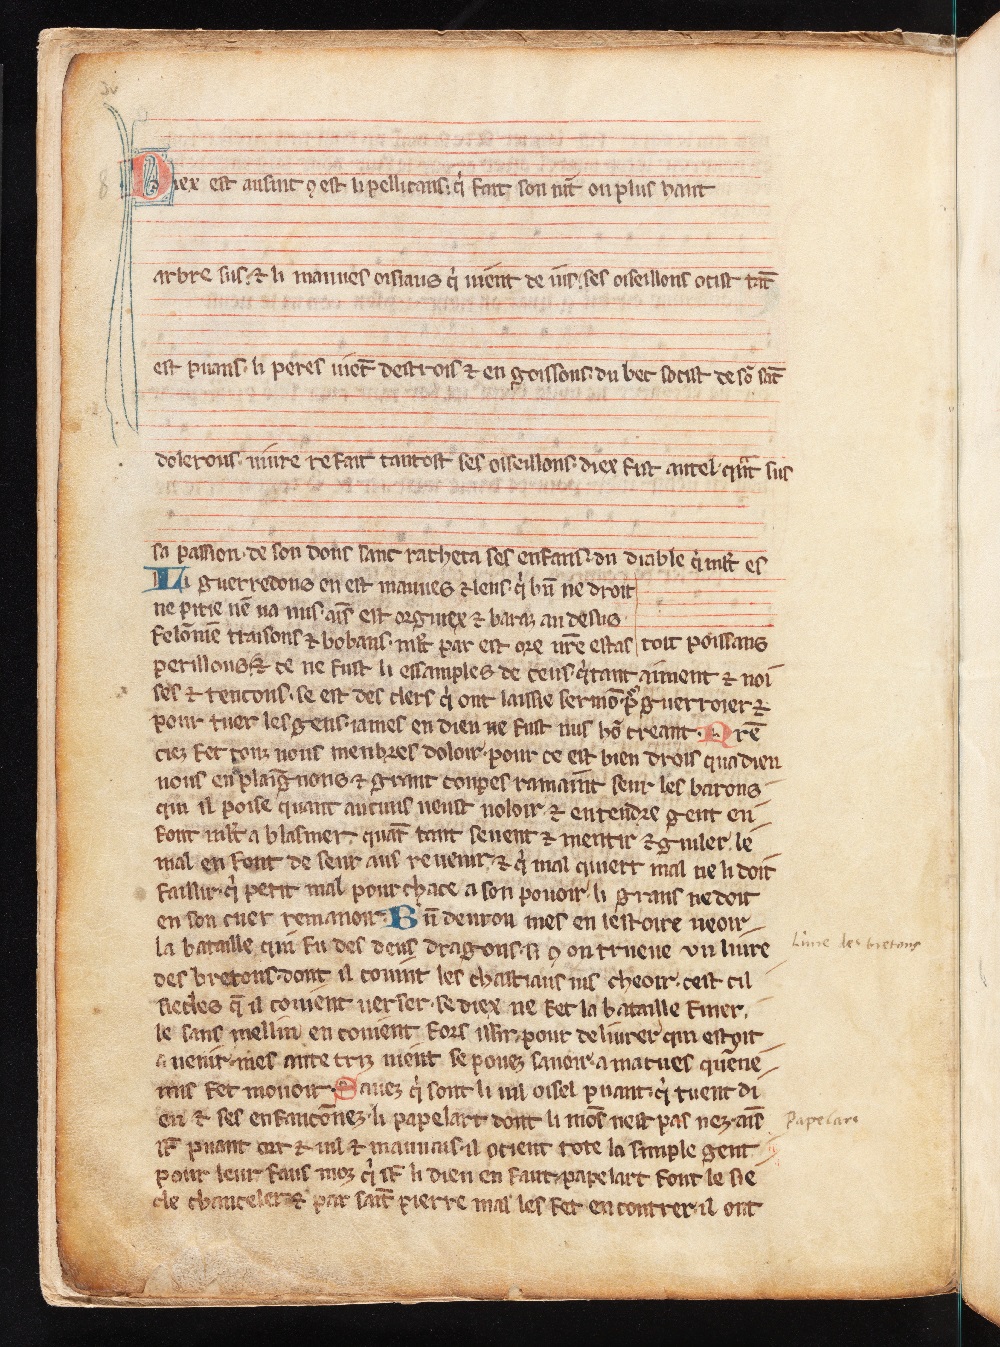 Diex est ausint ꝯ est li pellicans. q̓ fait son nit ou plus haut
arbre sus. ⁊ li mauues oisiaus q̓ uient de ius. ses oiseillons ocist tāt
est puans. li peres uiēt destrois ⁊ en goissous. du bec socist de sō sāc
dolerous. uiure refait tantost ses oiseillons. diex fist autel. qn̄t sus
sa passion. de son dous sanc racheta ses enfans. du diable q̓ mlt es
Li guerredons en est mauues ⁊ lens. q̓ bn̄ ne droit
ne pitie nē ua nus. ais est orguiex ⁊ baraz au desus
felōnie traisons ⁊ bobans. mlt par est ore nr̄e estas toit poissans
perillous. ⁊ ce ne fust li essamples de ceus. q̓ tant aiment ⁊ noi
ses ⁊ tencons. se est des clers q̓ ont laissie sermō p̄ guerroier ⁊
pour tuer les gens. iames en dieu ne fust nus hō creant. Nrē
ciez fet touz nous menbres doloir. pour ce est bien drois qua dieu
nous en plaīgnons. ⁊ grant coupes ramaint seur les barons
qui il poise quant aucuns ueust uoloir. ⁊ entendre gent en
font mlt a blasmer. quāt tant seuent ⁊ mentir ⁊ guiler. le
mal en font de seur aus reuenir. ⁊ q̓ mal quiert mal ne li doit
faillir. q̓ petit mal pourchace a son pouoir. li grans ne doit
en son cuer remanoir. Bn̄ deuron mes en lestoire ueoir
la bataille qui fu des deus dragons. si ꝯ on trueue en liure
des bretons. dont il couint les chastiaus ius cheoir. cest cil
siecles q̄ il couient uerser. se diex ne fet la bataille finer.
le sans mellin en couient fors issir. pour deliurer qui estoit
a uenir. mes antecriz uient se pouez sauoir. a macues quēne
mis fet mouoir. Sauez q̓ sont li uil oisel puant. q̓ tuent di
eu ⁊ ses enfancōnez. li papelart dont li mōs nest pas nez. ais
sr̄ puant ort ⁊ uil ⁊ mauuais. il ocient tote la simple gent
pour leur faus moz q̓ sr̄ li dieu en fant. papelart font le sie
cle chanceler. ⁊ par saīt pierre mal les fet encontrer. il ont
Liure des bretons
Papelart